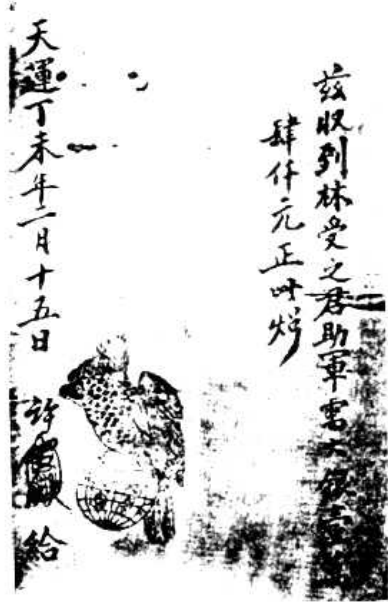 茲收到林受之君助軍需大銀
肆仟元正此炤
天運丁未年二月十五日 許雪 給